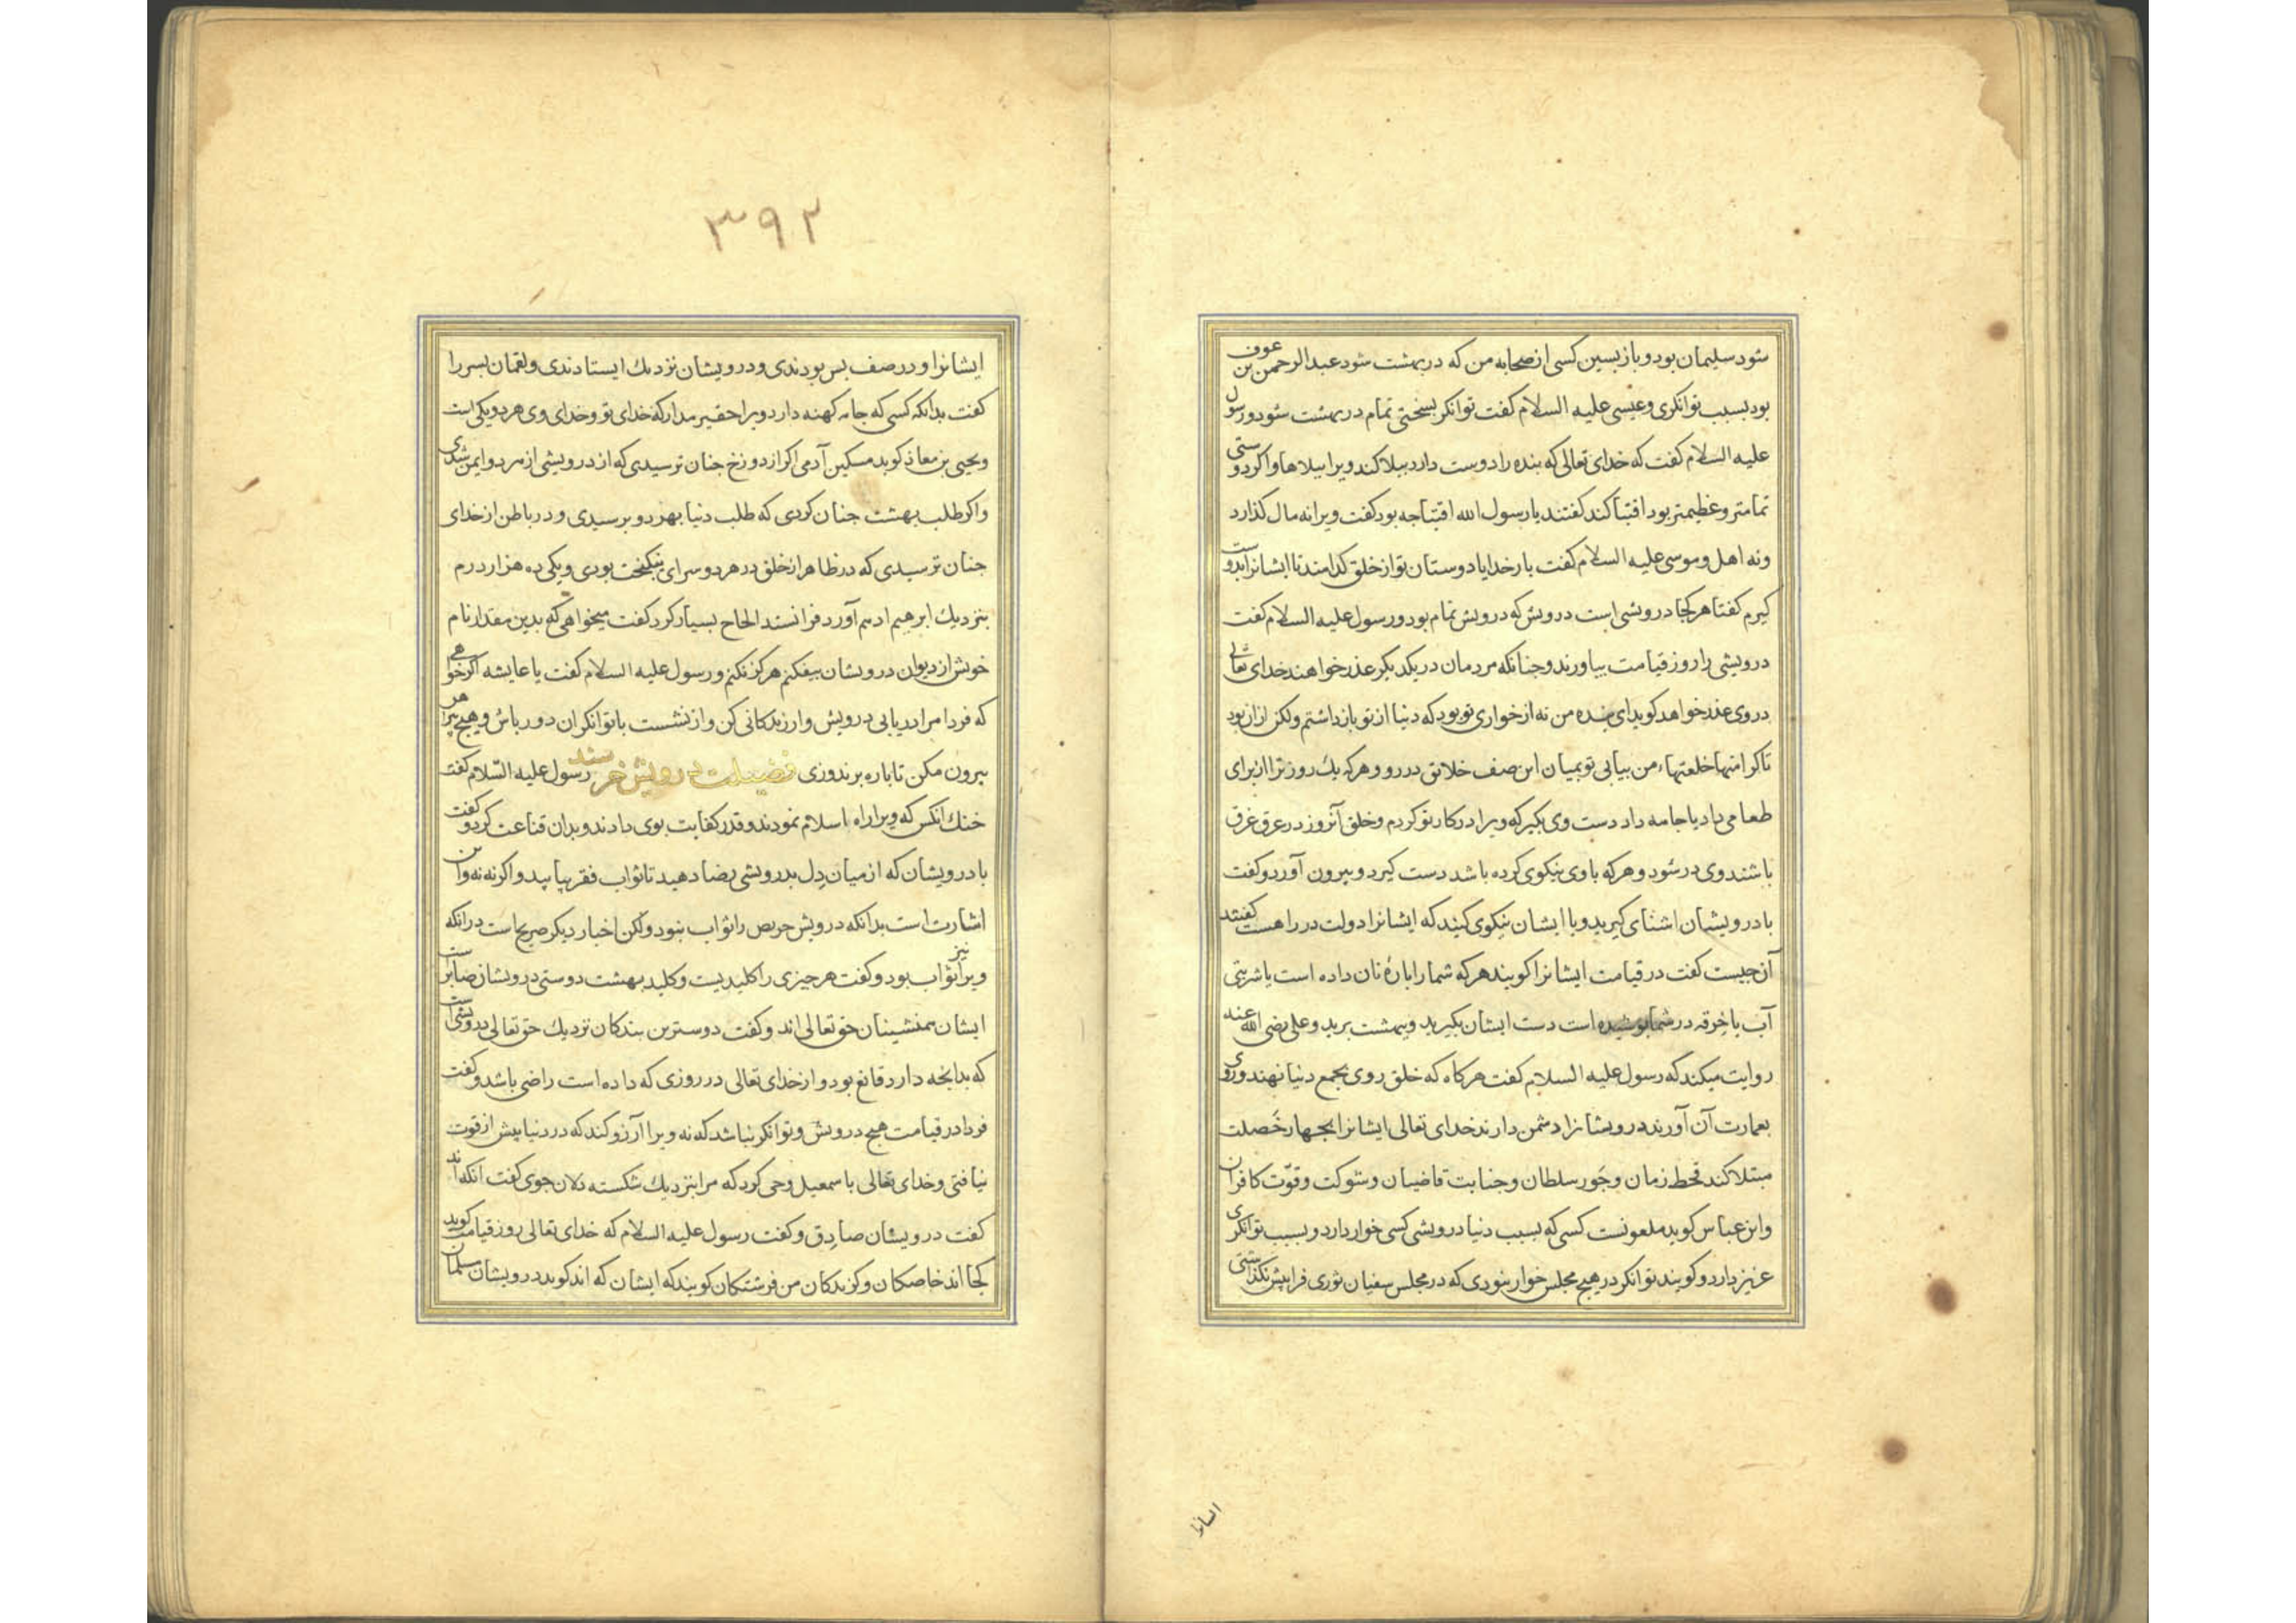 شود سلیمان بود و بازپسین کسی از صحابه من که در بهشت شود عبدالرحمن بن عوف
بود بسبب توانکری و عیسی علیه السلام کفت توانکر بسختی تمام در بهشت شود و رسول
علیه السلام کفت که خدای تعالی که بنده را دوست دارد ببلا کند ویرا ببلاها و اکر دوستی
تمامتر و عظیمتر بود اقتنا کند کفتند یا رسول الله اقتنا جه بود کفت ویرا نه مال کذارد
و نه اهل و موسی علیه السلام کفت بار خدایا دوستان تو از خلق کدامند تا ایشانرا بدوست
کیرم کفتا هر کجا درویشی است درویش که درویش تمام بود و رسول علیه السلام کفت
درویشی را روز قیامت بیاورند و جنانکه مردمان در یکدیکر عذر خواهند خدای تعالی
در وی عذر خواهد کوید ای بنده من نه از خواری تو بود که دنیا از تو بازداشتم ولکن از ان بود
تا کرامتها و خلعتهاء من بیابی تو بمیان این صف خلائق در رو و هر که یك روز ترا از برای
طعامی داد یا جامه داد دست وی بکیر که ویرا در کار تو کردم و خلق آنروز در عرق غرق
باشند وی در شود و هر که با وی نیکوی کرده باشد دست کیرد و بیرون آورد و کفت
با درویشان اشنای کیرید و با ایشان نیکوی کنید که ایشانرا دولت در راهست کفتند
آن جیست کفت در قیامت ایشانرا کویند هر که شما را پارۀ نان داده است یا شربتی
آب یا خرقه در شما پوشیده است دست ایشان بکیرید و ببهشت برید و علی رضی الله عنه
روایت میکند که رسول علیه السلام کفت هر کاه که خلق روی بجمع دنیا نهند و روی
بعمارت آن آورند و درویشانرا دشمن دارند خدای تعالی ایشانرا بجهار خصلت
مبتلا کند قحط زمان و جور سلطان و جنایت قاضیان و شوکت و قوّت کافران
و ابن عباس کوید ملعونست کسی که بسبب دنیا درویشی کسی خوار دارد و بسبب توانکری
عزیز دارد و کویند توانکر در هیج مجلس خوار نبودی که در مجلس سفیان ثوری فرا پیش نکذاشتی
ایشانرا
۳۹۲
ایشانرا و در صف پس بودندی و درویشان نزدیك ایستادندی و لقمان پسر را
کفت بدانکه کسی که جامه کهنه دارد ویرا حقیر مدار که خدای تو و خدای وی هر دو یکی است
و یحیی بن معاذ کوید مسکین آدمی اکر از دوزخ جنان ترسیدی که از درویشی از هر دو ایمن شدی
و اکر طلب بهشت جنان کردی که طلب دنیا بهر دو برسیدی و در باطن از خدای
جنان ترسیدی که در ظاهر از خلق در هر دو سرای نیکبخت بودی و یکی ده هزار درم
بنزدیك ابرهیم ادهم آورد فرا نستد الحاح بسیار کرد کفت میخواهی که بدین مقدار نام
خویش از دیوان درویشان بیفکنم هرکز نکنم و رسول علیه السلام کفت یا عایشه اکر خواهی
که فردا مرا دریابی درویش وار زندکانی کن و از نشست با توانکران دور باش و هیج پیراهن
بیرون مکن تا پاره بر ندوزی فضیلت درویش خرسند رسول علیه السّلام کفت
خنك انکس که ویرا راه اسلام نمودند و قدر کفایت بوی دادند و بدان قناعت کرد و کفت
با درویشان که از میان دل بدرویشی رضا دهید تا ثواب فقر بیابید و اکر نه نه و این
اشارت است بدانکه درویش حریص را ثواب نبود ولکن اخبار دیکر صریح است در انکه
ویرا نیز ثواب بود و کفت هر جیزی را کلیدیست و کلید بهشت دوستی درویشان صابر است
ایشان همنشینان حق تعالی اند و کفت دوسترین بندکان نزدیك حق تعالی درویشی است
که بدانجه دارد قانع بود و از خدای تعالی در روزی که داده است راضی باشد و کفت
فردا در قیامت هیج درویش و توانکر نباشد که نه ویرا آرزو کند که در دنیا پیش از قوت
نیافتی و خدای تعالی باسمعیل وحی کرد که مرا بنزدیك شکسته دلان جوی کفت انکه اند
کفت درویشان صادق و کفت رسول علیه السلام که خدای تعالی روز قیامت کوید
کجا اند خاصکان و کزیدکان من فرشتکان کویند که ایشان که اند کوید درویشان مسلمان